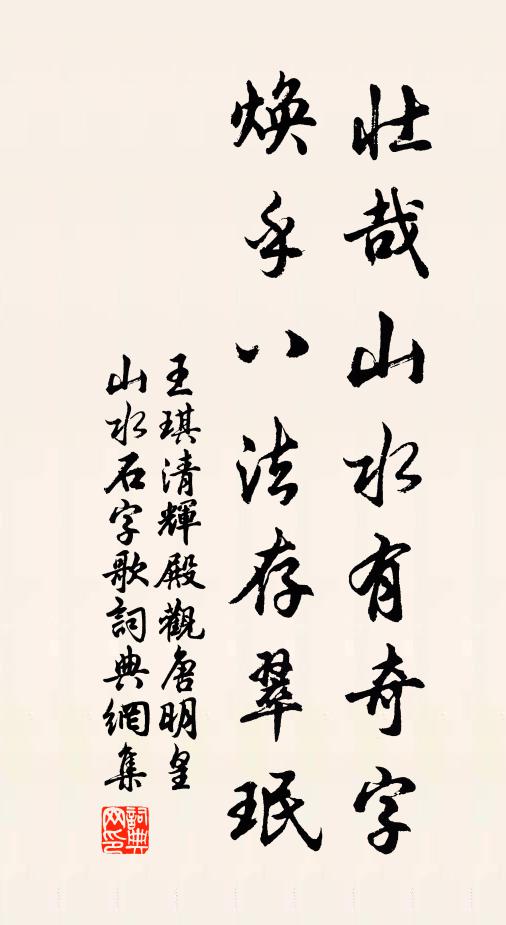 壯哉山水有奇字
煥乎八法存翠珉
王琪清輝殿觀唐明皇
山水石字歌詞典網集
詞典網印